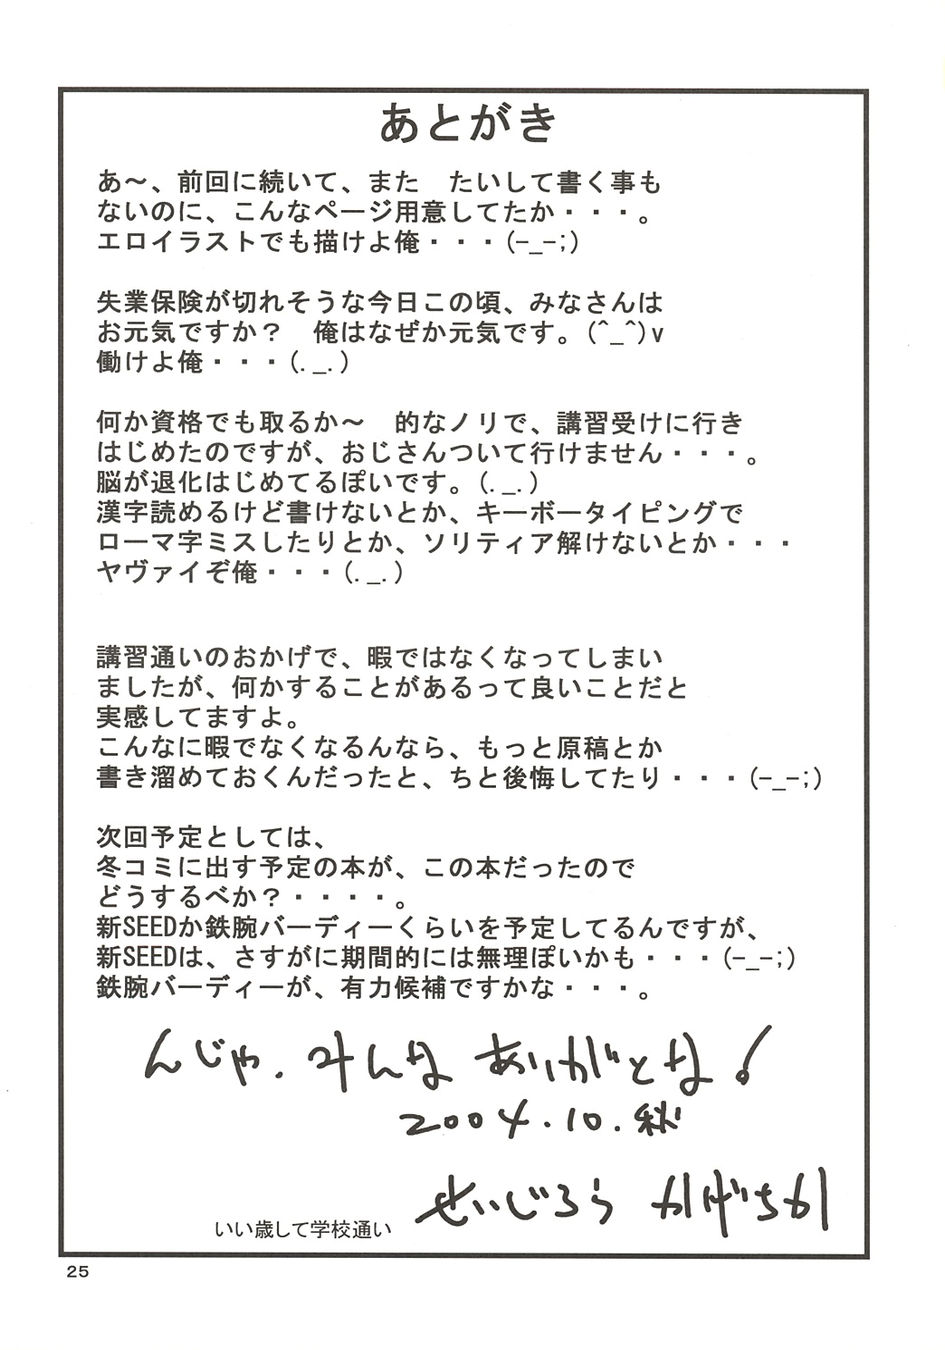 あとがき
あ～、前回に続いて、また　たいして書く事も
ないのに、こんなページ用意してたか・・・。
エロイラストでも描けよ俺・・・(-_-;)
失業保険が切れそうな今日この頃、みなさんは
お元気ですか？　俺はなぜか元気です。(^_^)v
働けよ俺・・・(._.)
何か資格でも取るか～　的なノリで、講習受けに行き
はじめたのですが、おじさんついて行けません・・・。
脳が退化はじめてるぽいです。(._.)
漢字読めるけど書けないとか、キーボータイピングで
ローマ字ミスしたりとか、ソリティア解けないとか・・・
ヤヴァイぞ俺・・・(._.)
講習通いのおかげで、暇ではなくなってしまい
ましたが、何かすることがあるって良いことだと
実感してますよ。
こんなに暇でなくなるんなら、もっと原稿とか
書き溜めておくんだったと、ちと後悔してたり・・・(-_-;)
次回予定としては、
冬コミに出す予定の本が、この本だったので
どうするべか？・・・・。
新SEEDか鉄腕バーディーくらいを予定してるんですが、
新SEEDは、さすがに期間的には無理ぽいかも・・・(-_-;)
鉄腕バーディーが、有力候補ですかな・・・。
んじゃ．みんなありがとな！
2004.10.秋
いい歳して学校通い せいじろう かげちか
25